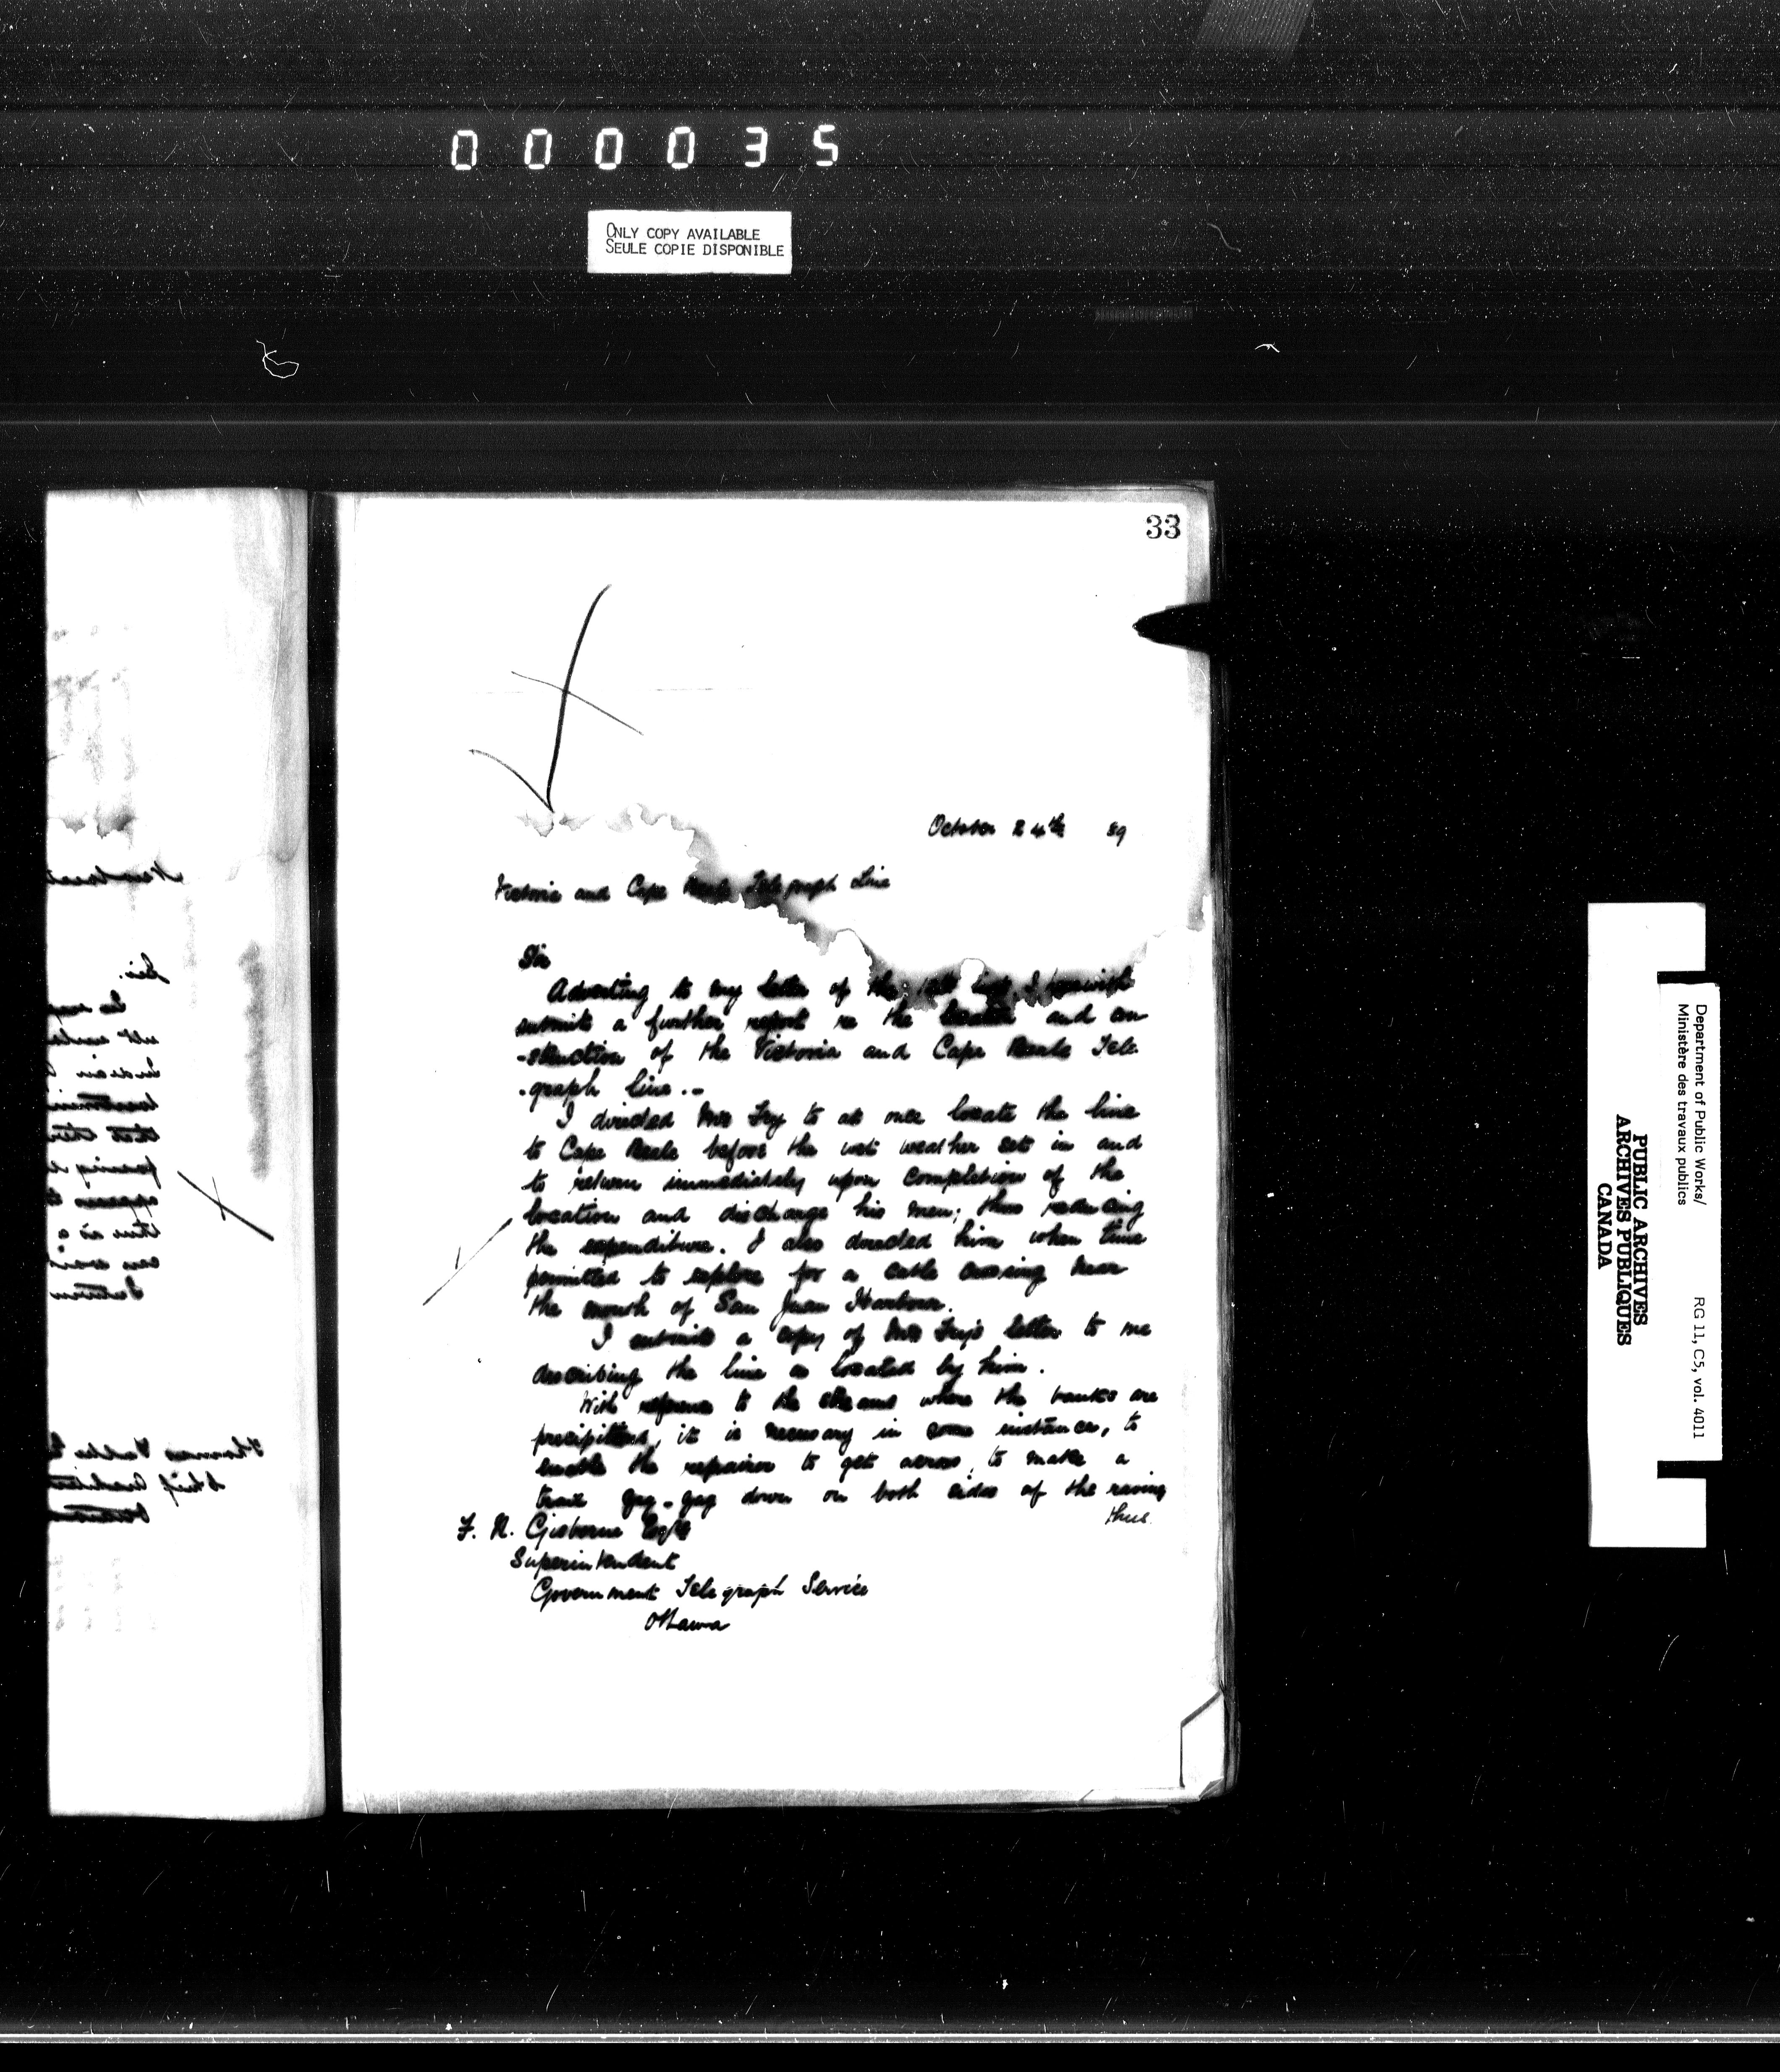 000035
ONLY COPY AVAILABLE
SEULE COPIE DISPONIBLE
33
October 24th 89
Victoria and Cape Beale Telegraph Line
Sir
Adverting to my letter of the inst, I herewith
submit a further report re the location and con
-struction of the Victoria and Cape Beale Tele
-graph line.-
I directed Mr Fry to at once locate the line
to Cape Beale before the wet weather sets in and
to return immediately upon completion of the
location and discharge his men; thus reducing
the expenditure. I also directed him when time
permitted to explore for a cable crossing near
the mouth of San Juan Harbour.
I submit a copy of Mr Fry's letter to me
describing the line as located by him.
With reference to the streams where the banks are
precipitous, it is necessary in some instances, to
enable the repairer to get across, to make a
trail gag-gag down on both sides of the raving
thus.
F. N. Gisborne Esqre
Superintendent
Government Telegraph Service
Ottawa
Department of Public Works/
Ministère des travaux publics
RG 11, C5, vol. 4011
PUBLIC ARCHIVES
ARCHIVES PUBLIQUES
CANADA